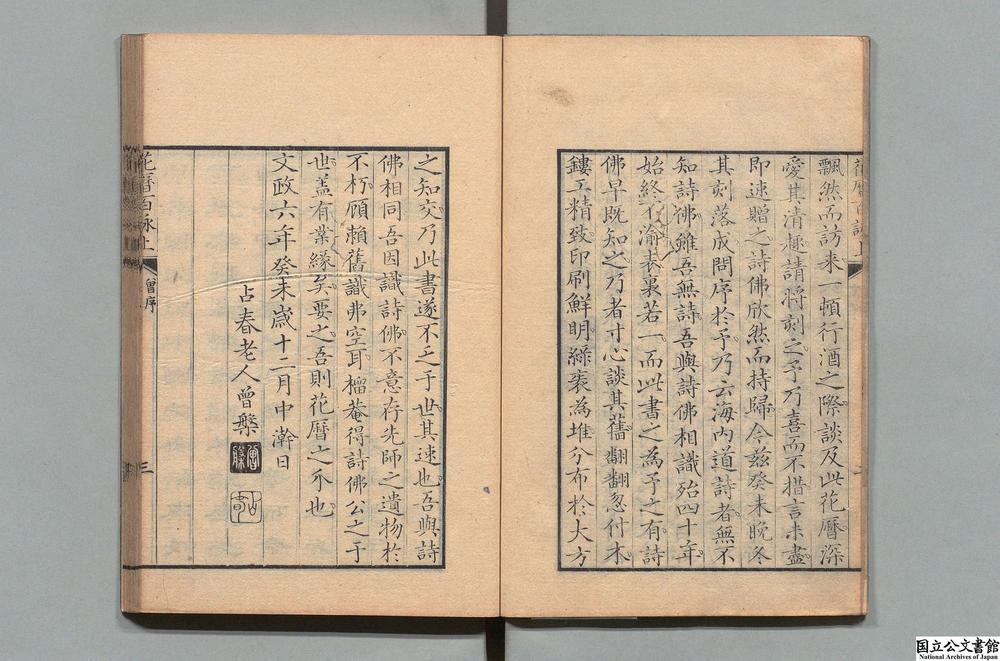 飄然而訪来一頓行酒之際談及此花曆深
愛其清趣請将刻之予乃喜而不措言未盡
即速贈之詩佛欣然而持歸今茲癸未晚冬
其刻落成問序於予乃云海內道詩者無不
知詩佛雖吾無詩吾與詩佛相識殆四十年
始終不渝表裏若一而此書之為予之有詩
佛早既知之乃者寸心談其舊翻翻忽付本
鏤工精致印刷鮮明緑袠為堆分布於大方
之知交乃此書遂不乏于世其速也吾與詩
佛相同吾因識詩佛不意存先師之遺物於
不朽顧頼舊識弗空耳榴菴得詩佛公之于
世盖有業緣矣要之吾則花曆之尒也
文政六年癸未歳十二月中澣日
占春老人曾槃
花曆百詠上
曾序
三
国立公文書館
National Archives of Japan